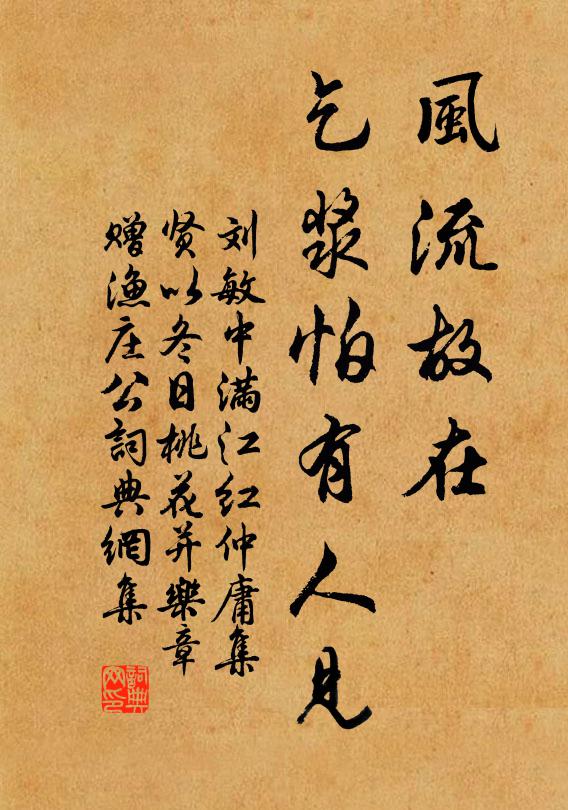 風流故在
乞漿怕有人見
刘敏中满江红仲庸集
贤以冬日桃花并樂章
赠渔庄公詞典網集
詞典網印